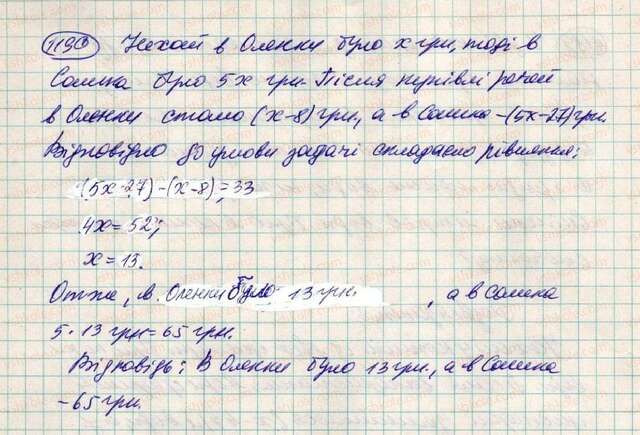 1190 Нехай в Оленки було x грн, тоді в
Сашка було 5x грн. Після купівлі речей
в Оленки стало (x-8) грн, а в Сашка -(5x-27) грн.
Відповідно до умови задачі складаємо рівняння:
(5x-27)-(x-8)=33
4x=52;
x=13.
Отже, в Оленки було 13 грн. , а в Сашка
5·13 грн=65 грн.
Відповідь: В Оленки було 13 грн., а в Сашка
-65 грн.